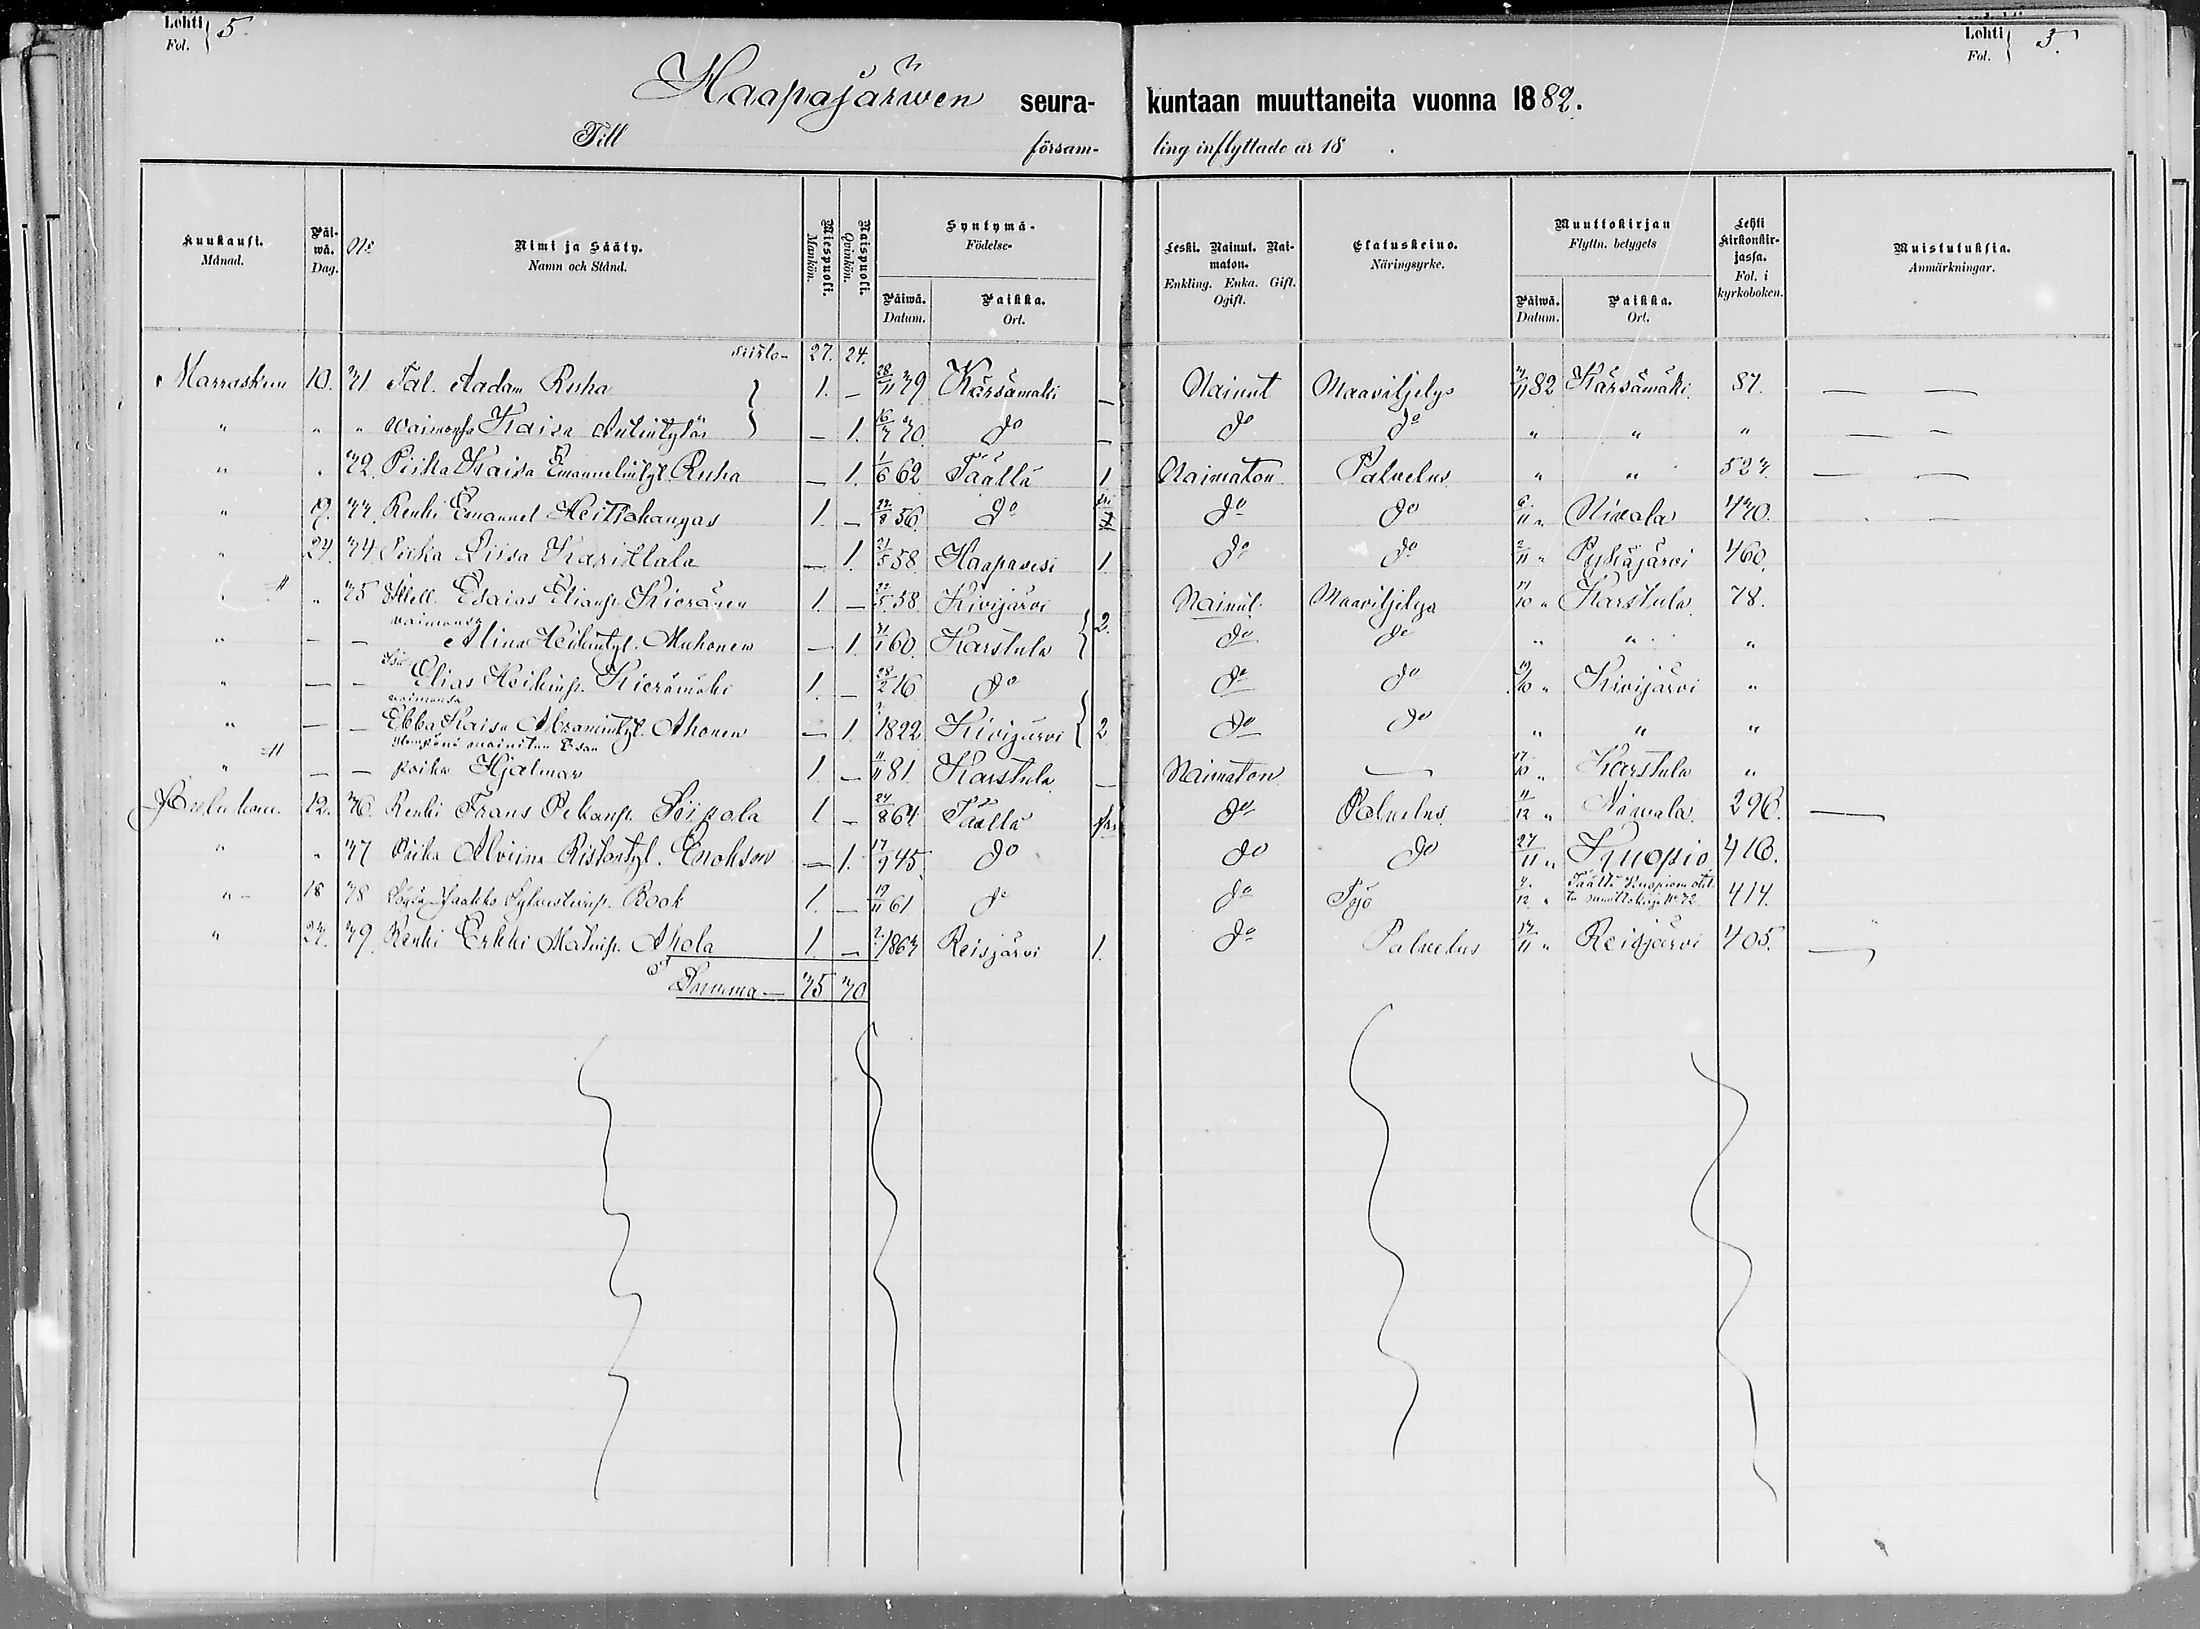 Lohti } 5.
Fol.
Lohti } 5.
Fol.
Haapajärwen seura- kuntaan muuttaneita vuonna 1882.
Till försam- ling inflyttade år 18 .
Kuukausi. Månad.
Päiwä. Dag.
No
Nimi ja Sääty. Namn och Stånd.
Miespuoli. Mankön.
Naispuoli. Qvinkön.
Syntymä- Födelse-
Päiwä. Datum.
Paikka. Ort.
Leski. Nainut. Naimaton. Enkling. Enka. Gift. Ogift.
Elatuskeino. Näringsyrke.
Muuttokirjan Flyttn. betygets
Päiwä. Datum.
Paikka. Ort.
Lehti kirkonkirjassa. Fol. i kyrkoboken.
Muistutuksia. Anmärkningar.
Siirto- 27. 24.
Marraskuu 10. 31 Tal. Aadam Ruha } 1. – 28/11 39 Kärsämäki – Nainut Maaviljelys 3/11 82 Kärsämäki 87. — —
" " " Waimonsa Kaisa Antintytär } – 1. 16/3 30. do – do do " " " — –
" " 32. Piika Kaisa Emanuelintyt. Ruha – 1. 1/6 62 Täällä 1 Naimaton Palvelus " " 523. — —
" 19. 33. Renki Emanuel Heitto­hangas 1. – 22/8 56. do do do 6/11 " Nivala 430. - -
" 24. 34 Piika Liisa Karittala – 1. 21/5 58. Haapavesi 1. do do 2/11 " Pyhäjärvi 460.
" " 35 Itsell. Esaias Elianp. Kieränen 1. – 22/5 58. Kivijärvi Nainut. Maaviljelys 17/10 " Karstula 78.
" – – vaimonsa Alina Heikintyt. Muhonen – 1. 31/1 60. Karstula } 2. do do " " "
" – – Isä Elias Heikinp. Kierämäki 1. – 28/2 16 do do do 19/10 " Kivijärvi "
" – – vaimonsa Ebba Kaisa Abramintyt. Ahonen – 1. 1822 Kivijärvi } 2 do do " " "
" – – poika Hjalmar 1. – 11/11 81. Karstula – Naimaton — 17/10 " Karstula "
Joulukuu. 12. 36. Renki Frans Pekanp. Siipola 1 – 24/8 64. Täällä do Palvelus 11/12 " Nivala 296. —
" " 37 Piika Alviina Ristontyt. Enokson – 1. 17/9 45. do do do 27/11 " Kuopio 416.
" 18 38 Jaakko Sylvesterinp. Book 1. – 19/11 61. do do Työ 4./12 " Täältä Kuopioon otettu muuttokirja No 72. 414.
" 27. 39. Renki Erkki Matinp. Ahola 1. – 1863 Reisjärvi 1. do Palvelus 17/11 " Reisjärvi 405. —
Summa — 35 30